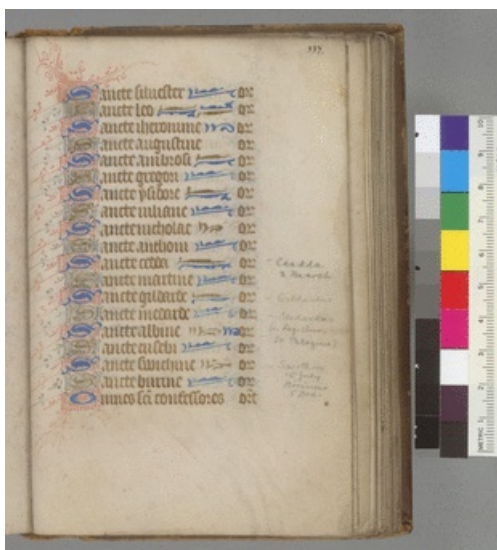 Sancte silvester or
Sancte leo or
Sancte iheronime or
Sancte augustine
Sancte ambrosi or
Sancte gregori or
Sancte ysidore or
Sancte iuliane or
Sancte nicholae or
Sancte anthoni or
Sancte cedda or
Sancte martine or
Sancte gildarde or
Sancte medarde or
Sancte albine or
Sancte eusebi or
Sancte swichine or
Sancte birine or
Omnes sci confessores ort
Ceadda
2 March
Swithin